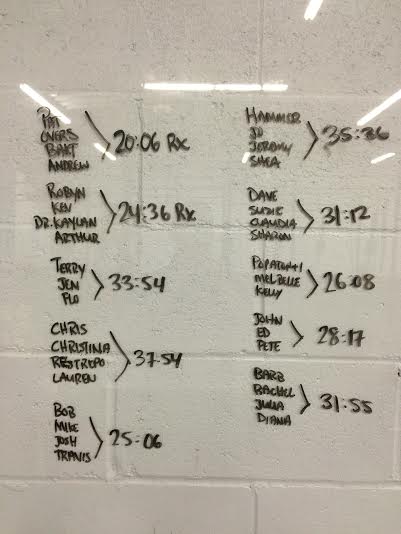 PAT
BART
ANDREW
20:06 Rx
ROBYN
KEV
DR. KAYLAN
ARTHUR
24:36 Rx
TERRY
JEN
FLO
33:54
CHRIS
CHRISTINA
RESTREPO
LAUREN
37:54
BOB
MIKE
JOSH
TRAVIS
25:06
HAMMER
JO
JEREMY
SHEA
35:36
DAVE
SUZIE
CLAUDIA
SHARON
31:12
MELBELLE
KELLY
26:08
JOHN
ED
PETE
28:17
BARB
RACHEL
JULIA
DIANA
31:55